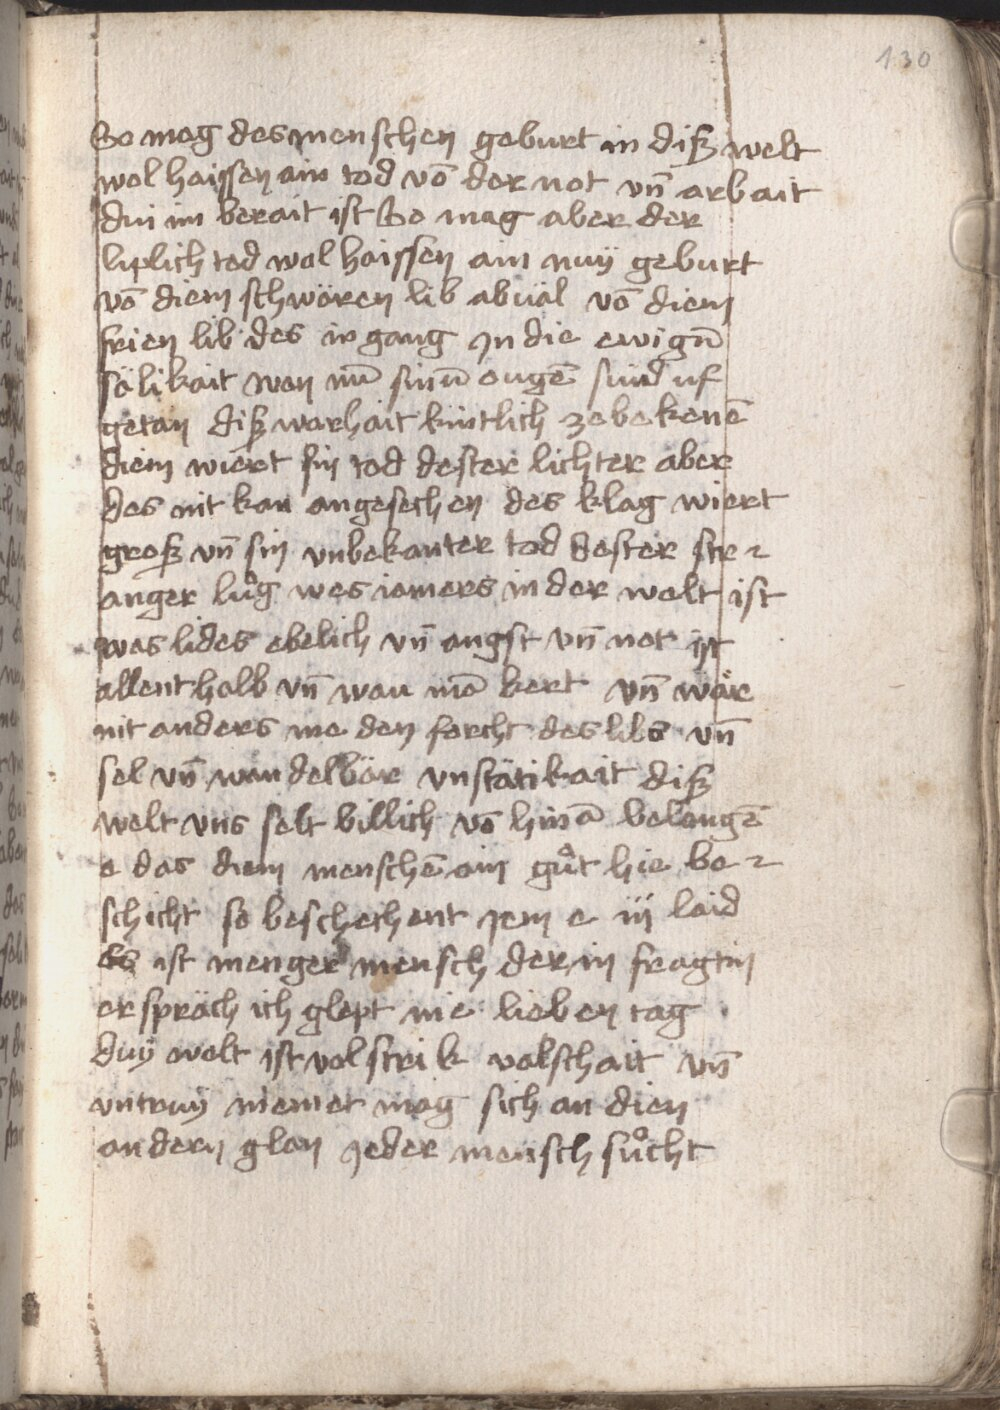 130
So mag des menschen geburt in diß welt
wol haissen ain tod vō der not vn̄ arbait
dui im berait ist So mag aber der
liplich tod wol haissen ain nuÿ geburt
vō diem schwören lib abual vō diem
frien lib des in gang In die ewigū
sälikait wen nū sinū ougē sind uf
getan diß warhait kuntlich ze bekenē
diem wiert sin tod dester lichter aber
des nit kan angesechen des klag wiert
groß vn̄ sin vnbekanter tod dester str
anger lůg wes iamers in der welt ist
was lides ebelich vn̄ angst vn̄ not ist
allenthalb vn̄ wan mā kert vn̄ wär
nit anders me den forcht des libs vn̄
sel vn̄ wandelbär vnstätikait diß
welt vns solt billich vō hinā belangē
e das diem menschē ain gůt hie be
schicht so beschechent Jem e iij laid
Es ist menger mensch der in fragtin
er spräch ich glept nie lieben tag
duÿ welt ist vol strik valschait vn̄
vntruÿ niemet mag sich an dien
andern glan Jeder mensch sůcht